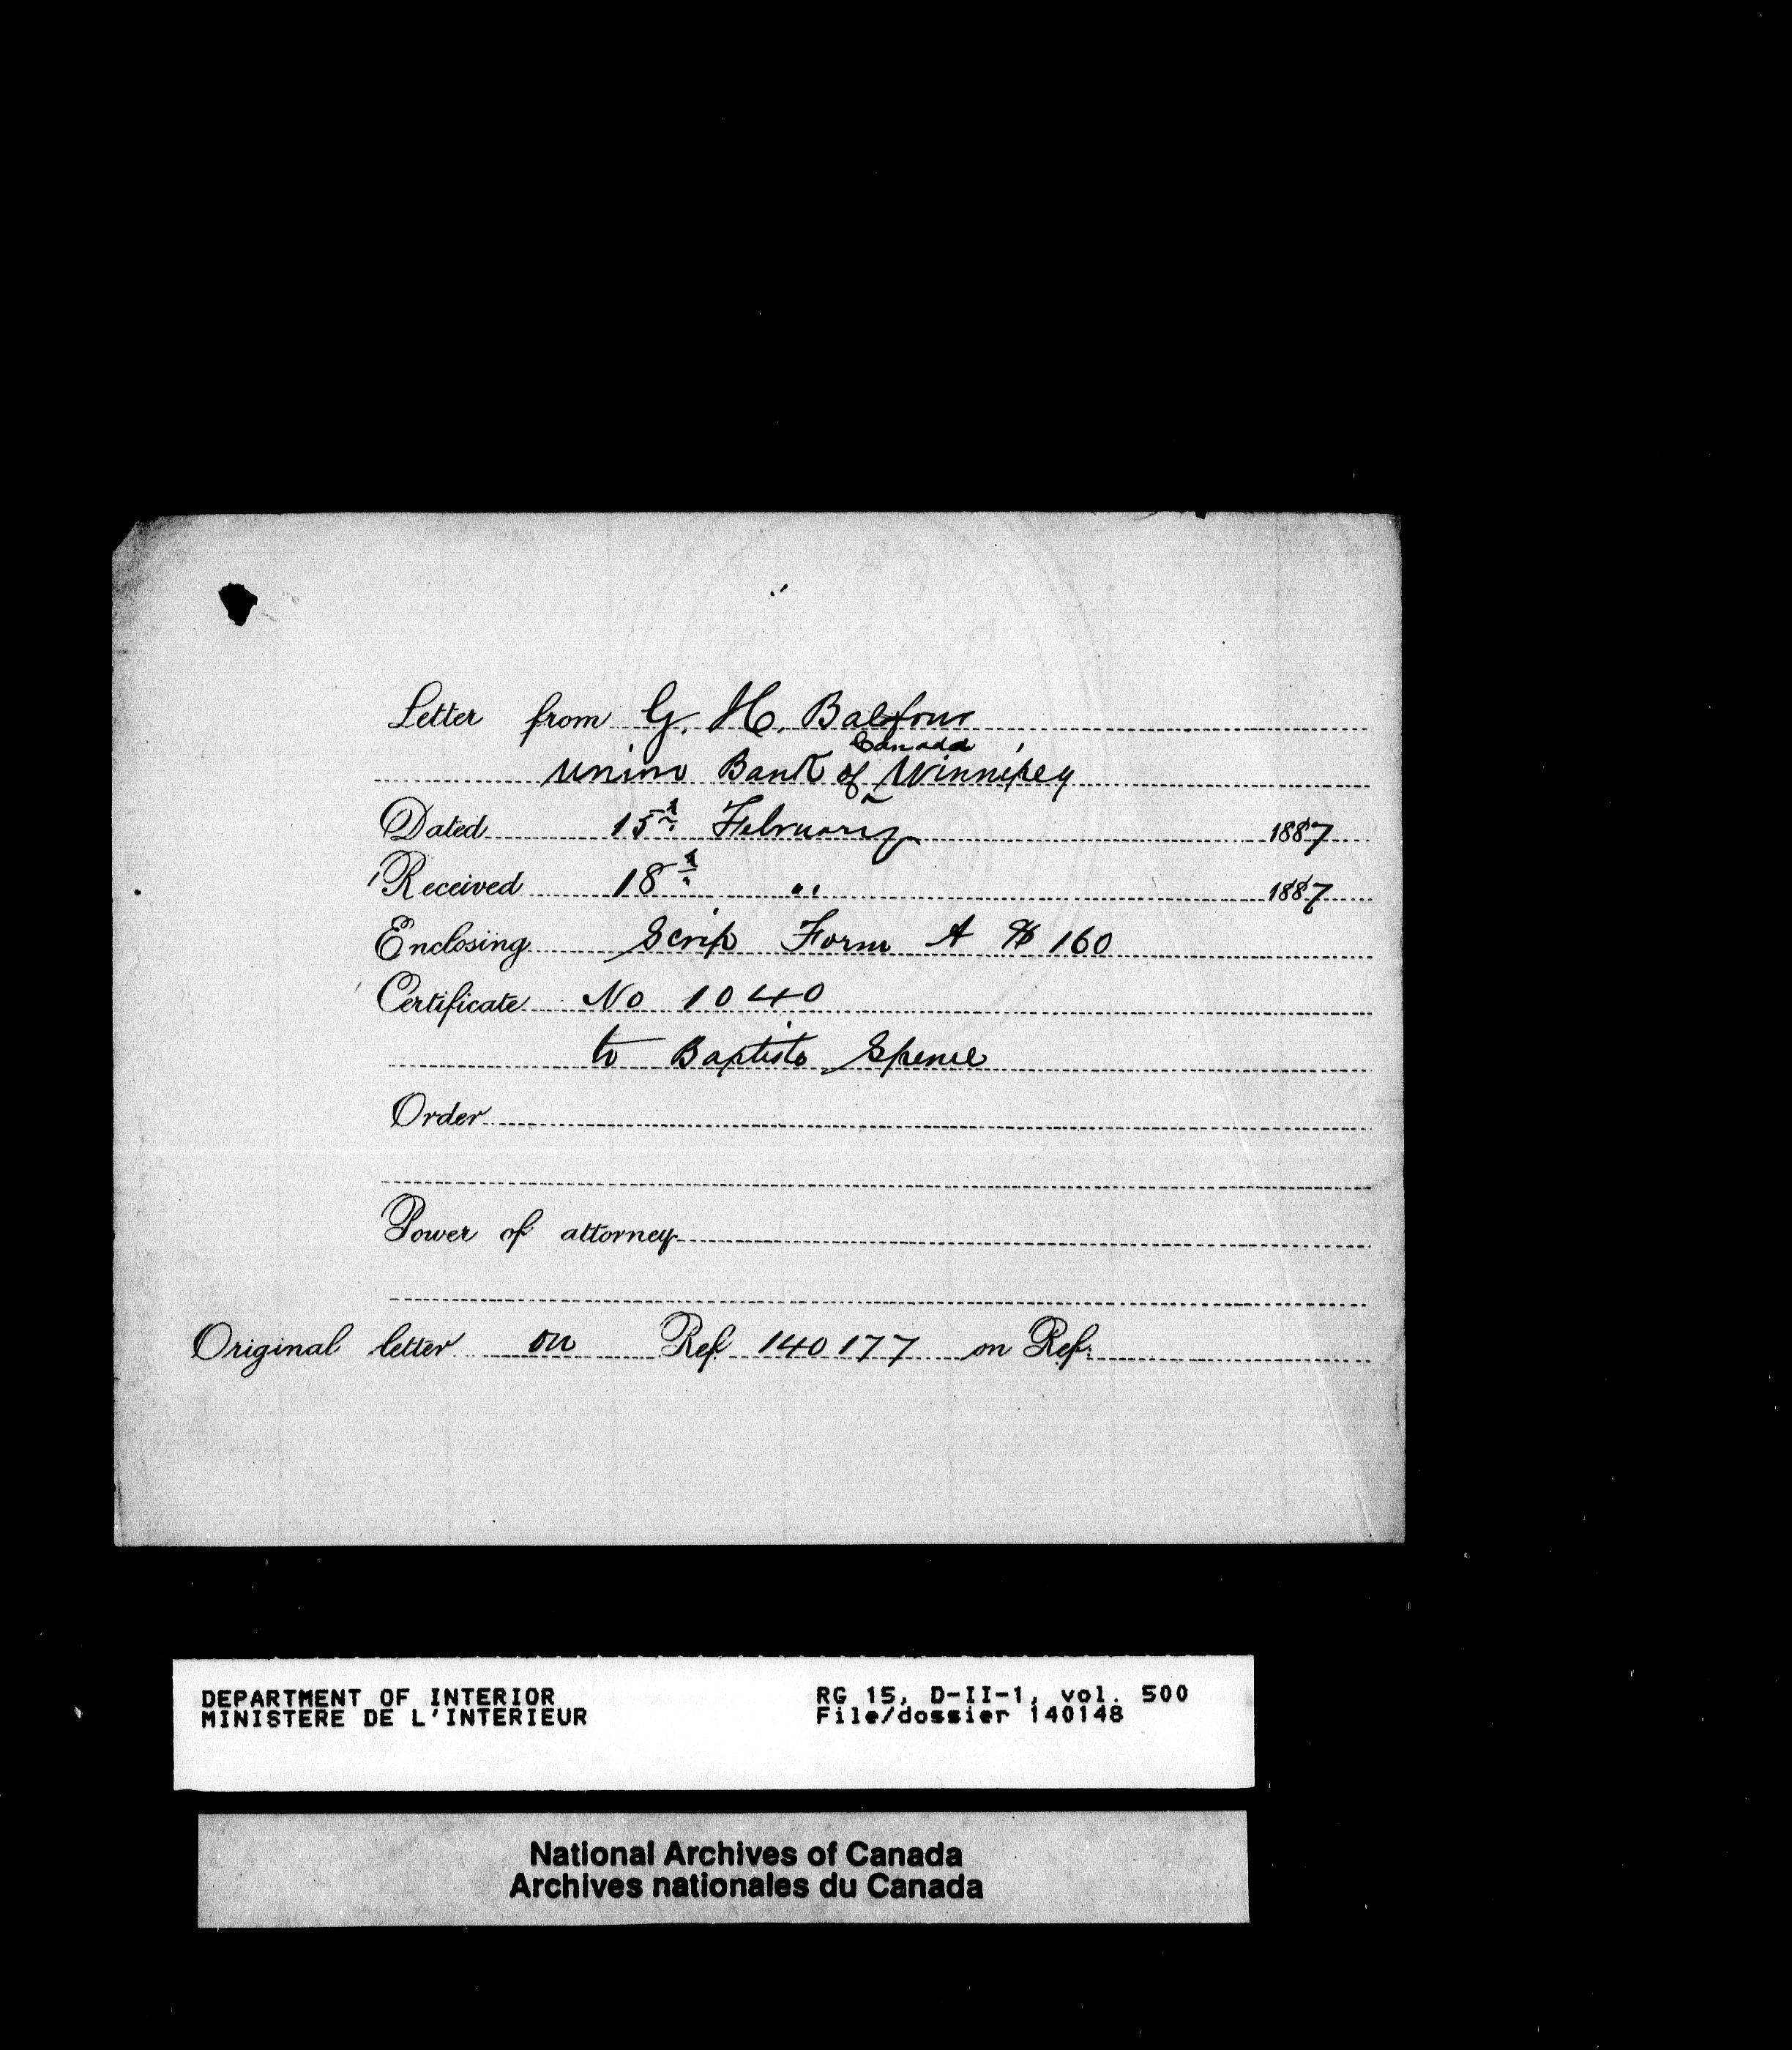 Letter from G. H. Balfour
Canada
Union Bank of Winnipeg
Dated 15th February 1887
Received 18th " 1887
Enclosing Scrip Form A $160
Certificate No 1040
to Baptiste Spence
Order
Power of attorney
Original letter on Ref 140177 on Ref:
DEPARTMENT OF INTERIOR RG 15, D-II-1, vol. 500
MINISTERE DE L'INTERIEUR File/dossier 140148
National Archives of Canada
Archives nationales du Canada